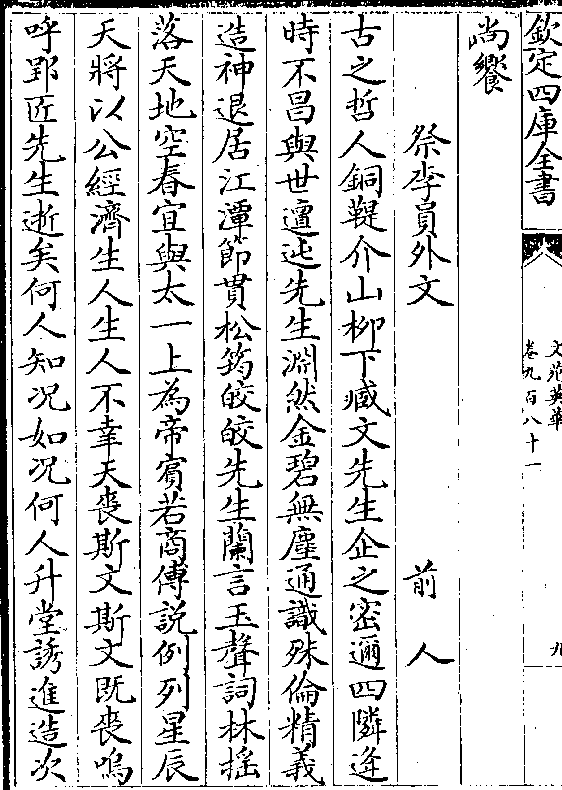 欽定四庫全書
文苑英華
卷九百八十一
九
尚饗
祭李員外文 前人
古之哲人銅鞮介山柳下臧文先生企之密邇四隣逢
時不昌與世邅迍先生淵然金碧無塵通識殊倫精義
造神退居江潭節貫松筠皎皎先生蘭言玉聲詞林搖
落天地空春宜與太一上為帝賓若商傅説例列星辰
天將以公經濟生人生人不幸天喪斯文斯文既喪嗚
呼郢匠先生逝矣何人知况如况何人升堂誘進造次